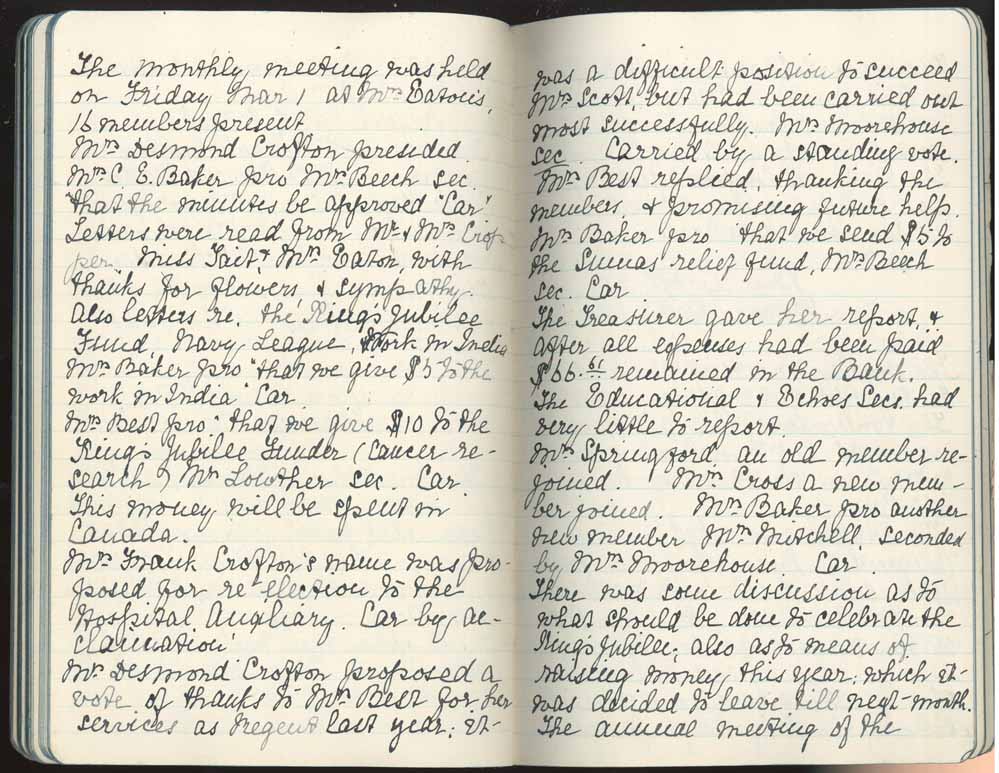 The monthly meeting was held
on Friday Mar 1 at Mrs Eaton's,
16 members present
Mrs Desmond Crofton presided.
Mrs C. E. Baker pro Mrs Beech sec.
"that the minutes be approved "Car"
Letters were read from Mr & Mrs Crop-
per Miss Tait, & Mrs Eaton, with
thanks for flowers & sympathy.
Also letters re. the King's Jubilee
Fund, Navy League, Work in India
Mrs Baker pro "that we give $5 to the
work in India" Car
Mrs Best pro "that we give $10 to the
King's Jubilee Funder (Cancer re-
search) Mrs Lowther sec. Car.
This money will be spent in
Canada.
Mrs Frank Crofton's name was pro-
posed for re-election to the
Hospital Auxiliary. Car by ac-
clamation
Mrs Desmond Crofton proposed a
vote of thanks to Mrs Best for her
services as Regent last year; it
was a difficult position to succeed
Mrs Scott, but had been carried out
most successfully. Mrs Moorehouse
sec. Carried by a standing vote.
Mrs Best replied, thanking the
members, & promising future help.
Mrs Baker pro "that we send $5 to
the Sumas relief fund, Mrs Beech
sec. Car
The Treasurer gave her report, &
after all expenses had been paid
$66.61 remained in the Bank.
The Educational & Echoes Secs. had
very little to report.
Mrs Springford an old member re-
joined. Mrs Cross a new mem-
ber joined. Mrs Baker pro another
new member Mrs Mitchell, seconded
by Mrs Moorehouse Car.
There was some discussion as to
what should be done to celebrate the
King's Jubilee; also as to means of
raising money this year; which it
was decided to leave till next month.
The annual meeting of the